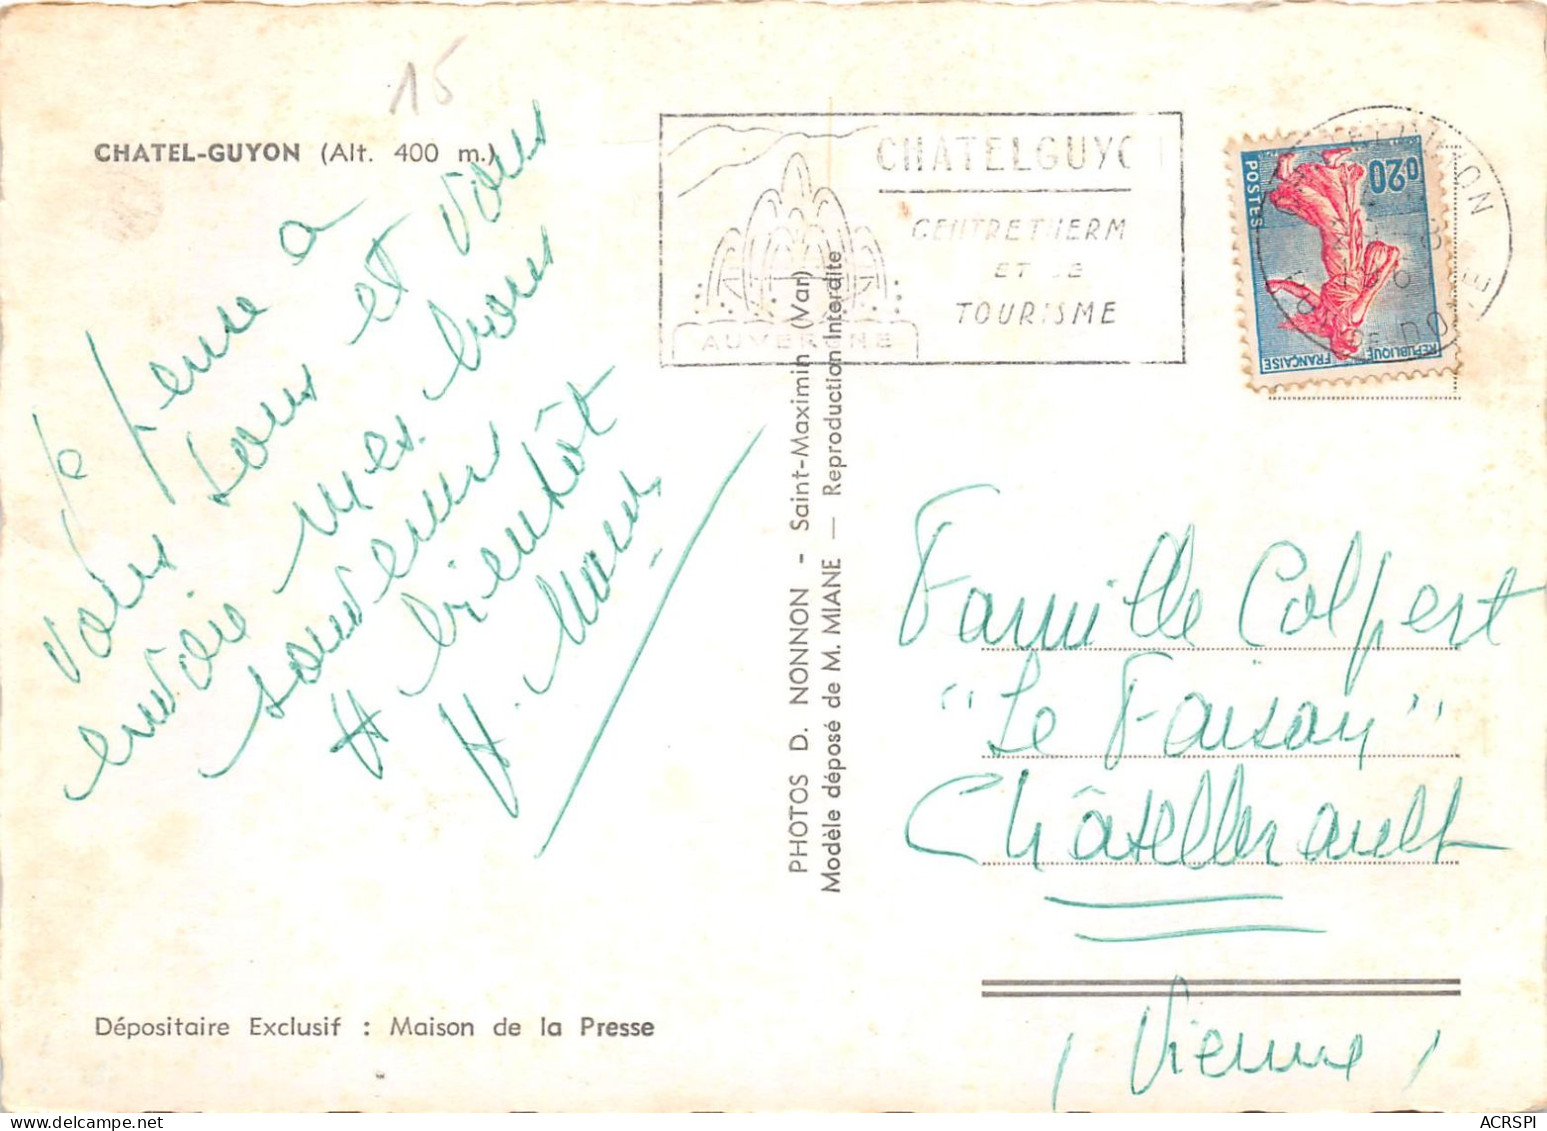 15
CHATEL-GUYON (Alt. 400 m.)
Je pense à
vous tous et vous
envoie mes bons
souvenirs
A bientôt
CHATELGUYO
CENTRE THERM
ET DE
TOURISME
AUVERGNE
0,20
POSTES
REPUBLIQUE FRANÇAISE
PHOTOS D. NONNON - Saint-Maximin (Var)
Modèle déposé de M. MIANE — Reproduction Interdite
Famille Colpert
"Le Faisan"
Châtellerault
(Vienne)
Dépositaire Exclusif : Maison de la Presse
ACRSPI